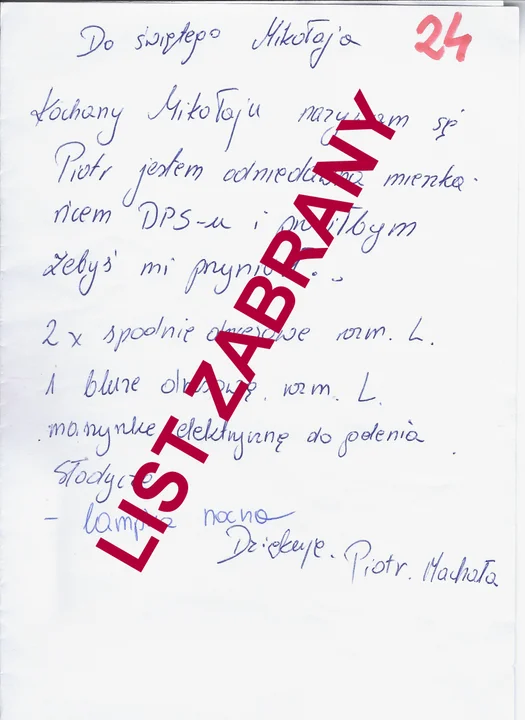 Do świętego Mikołaja
24
Kochany Mikołaju nazywam się
Piotr jestem odniedawna mieszka-
ńcem DPS-u i prosiłbym
żebyś mi przyniósł..
2 x spodnie dresowe rozm. L.
1 bluzę dresową rozm. L.
maszynkę elektryczną do golenia
Słodycze
- lampka nocna
Dziękuję. Piotr. Machała
LIST ZABRANY